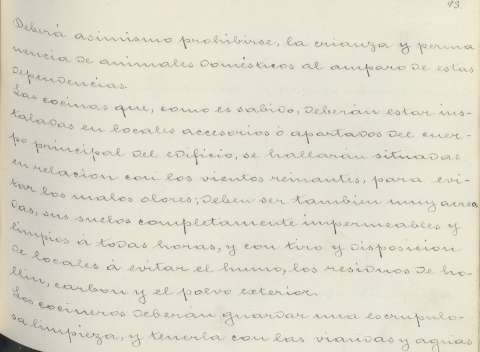 93.
Deberá asimismo prohibirse, la crianza y perma
nencia de animales domésticos al amparo de estas
dependencias.
Las cocinas que, como es sabido, deberán estar ins-
taladas en locales accesorios ó apartados del cuer-
po principal del edificio, se hallarán situadas
en relacion con los vientos reinantes, para evi-
tar los malos olores; deben ser tambien muy airea
das, sus suelos completamente impermeables y
limpios á todas horas, y con tiro y disposicion
de locales á evitar el humo, los residuos de ho-
llin, carbon y el polvo exterior.
Los cocineros deberán guardar una escrupulo-
sa limpieza, y tenerla con las viandas y aguas